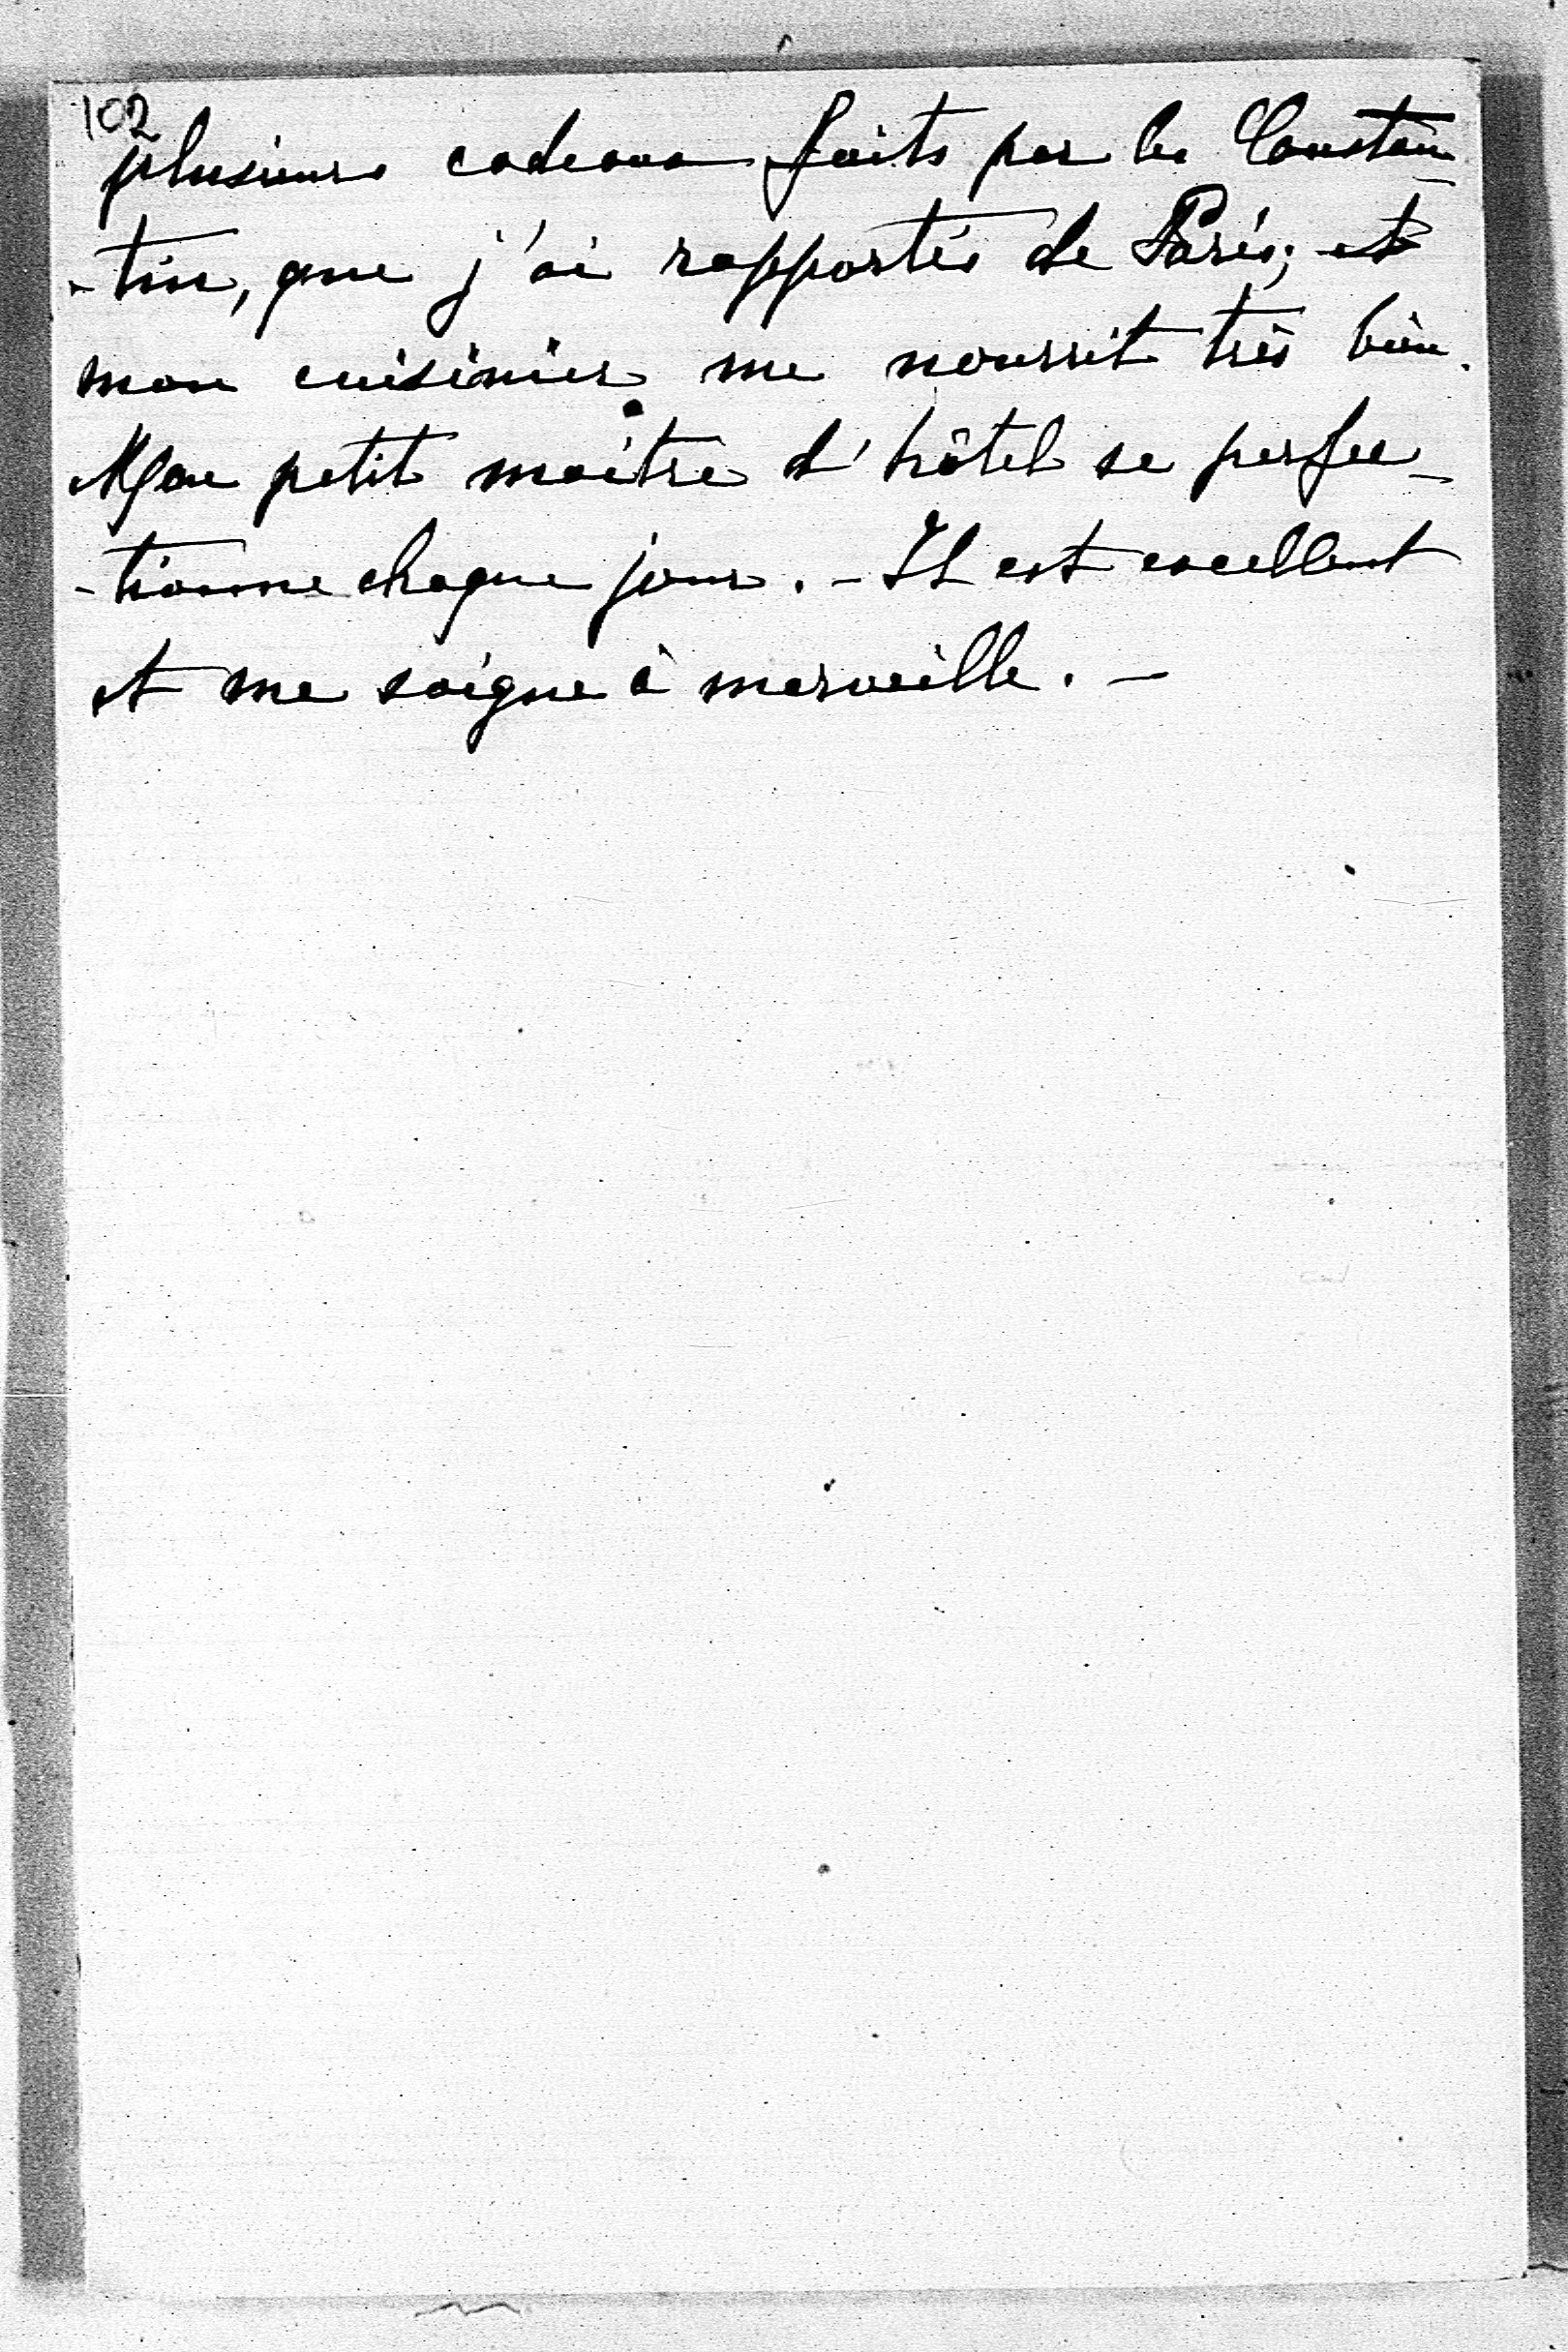 102
plusieurs cadeaux faits par les Constan-
-tin, que j'ai rapportés de Paris; et
mon cuisinier me nourrit très bien.
Mon petit maître d'hôtel se perfec-
-tionne chaque jour. - Il est excellent
et me soigne à merveille. -